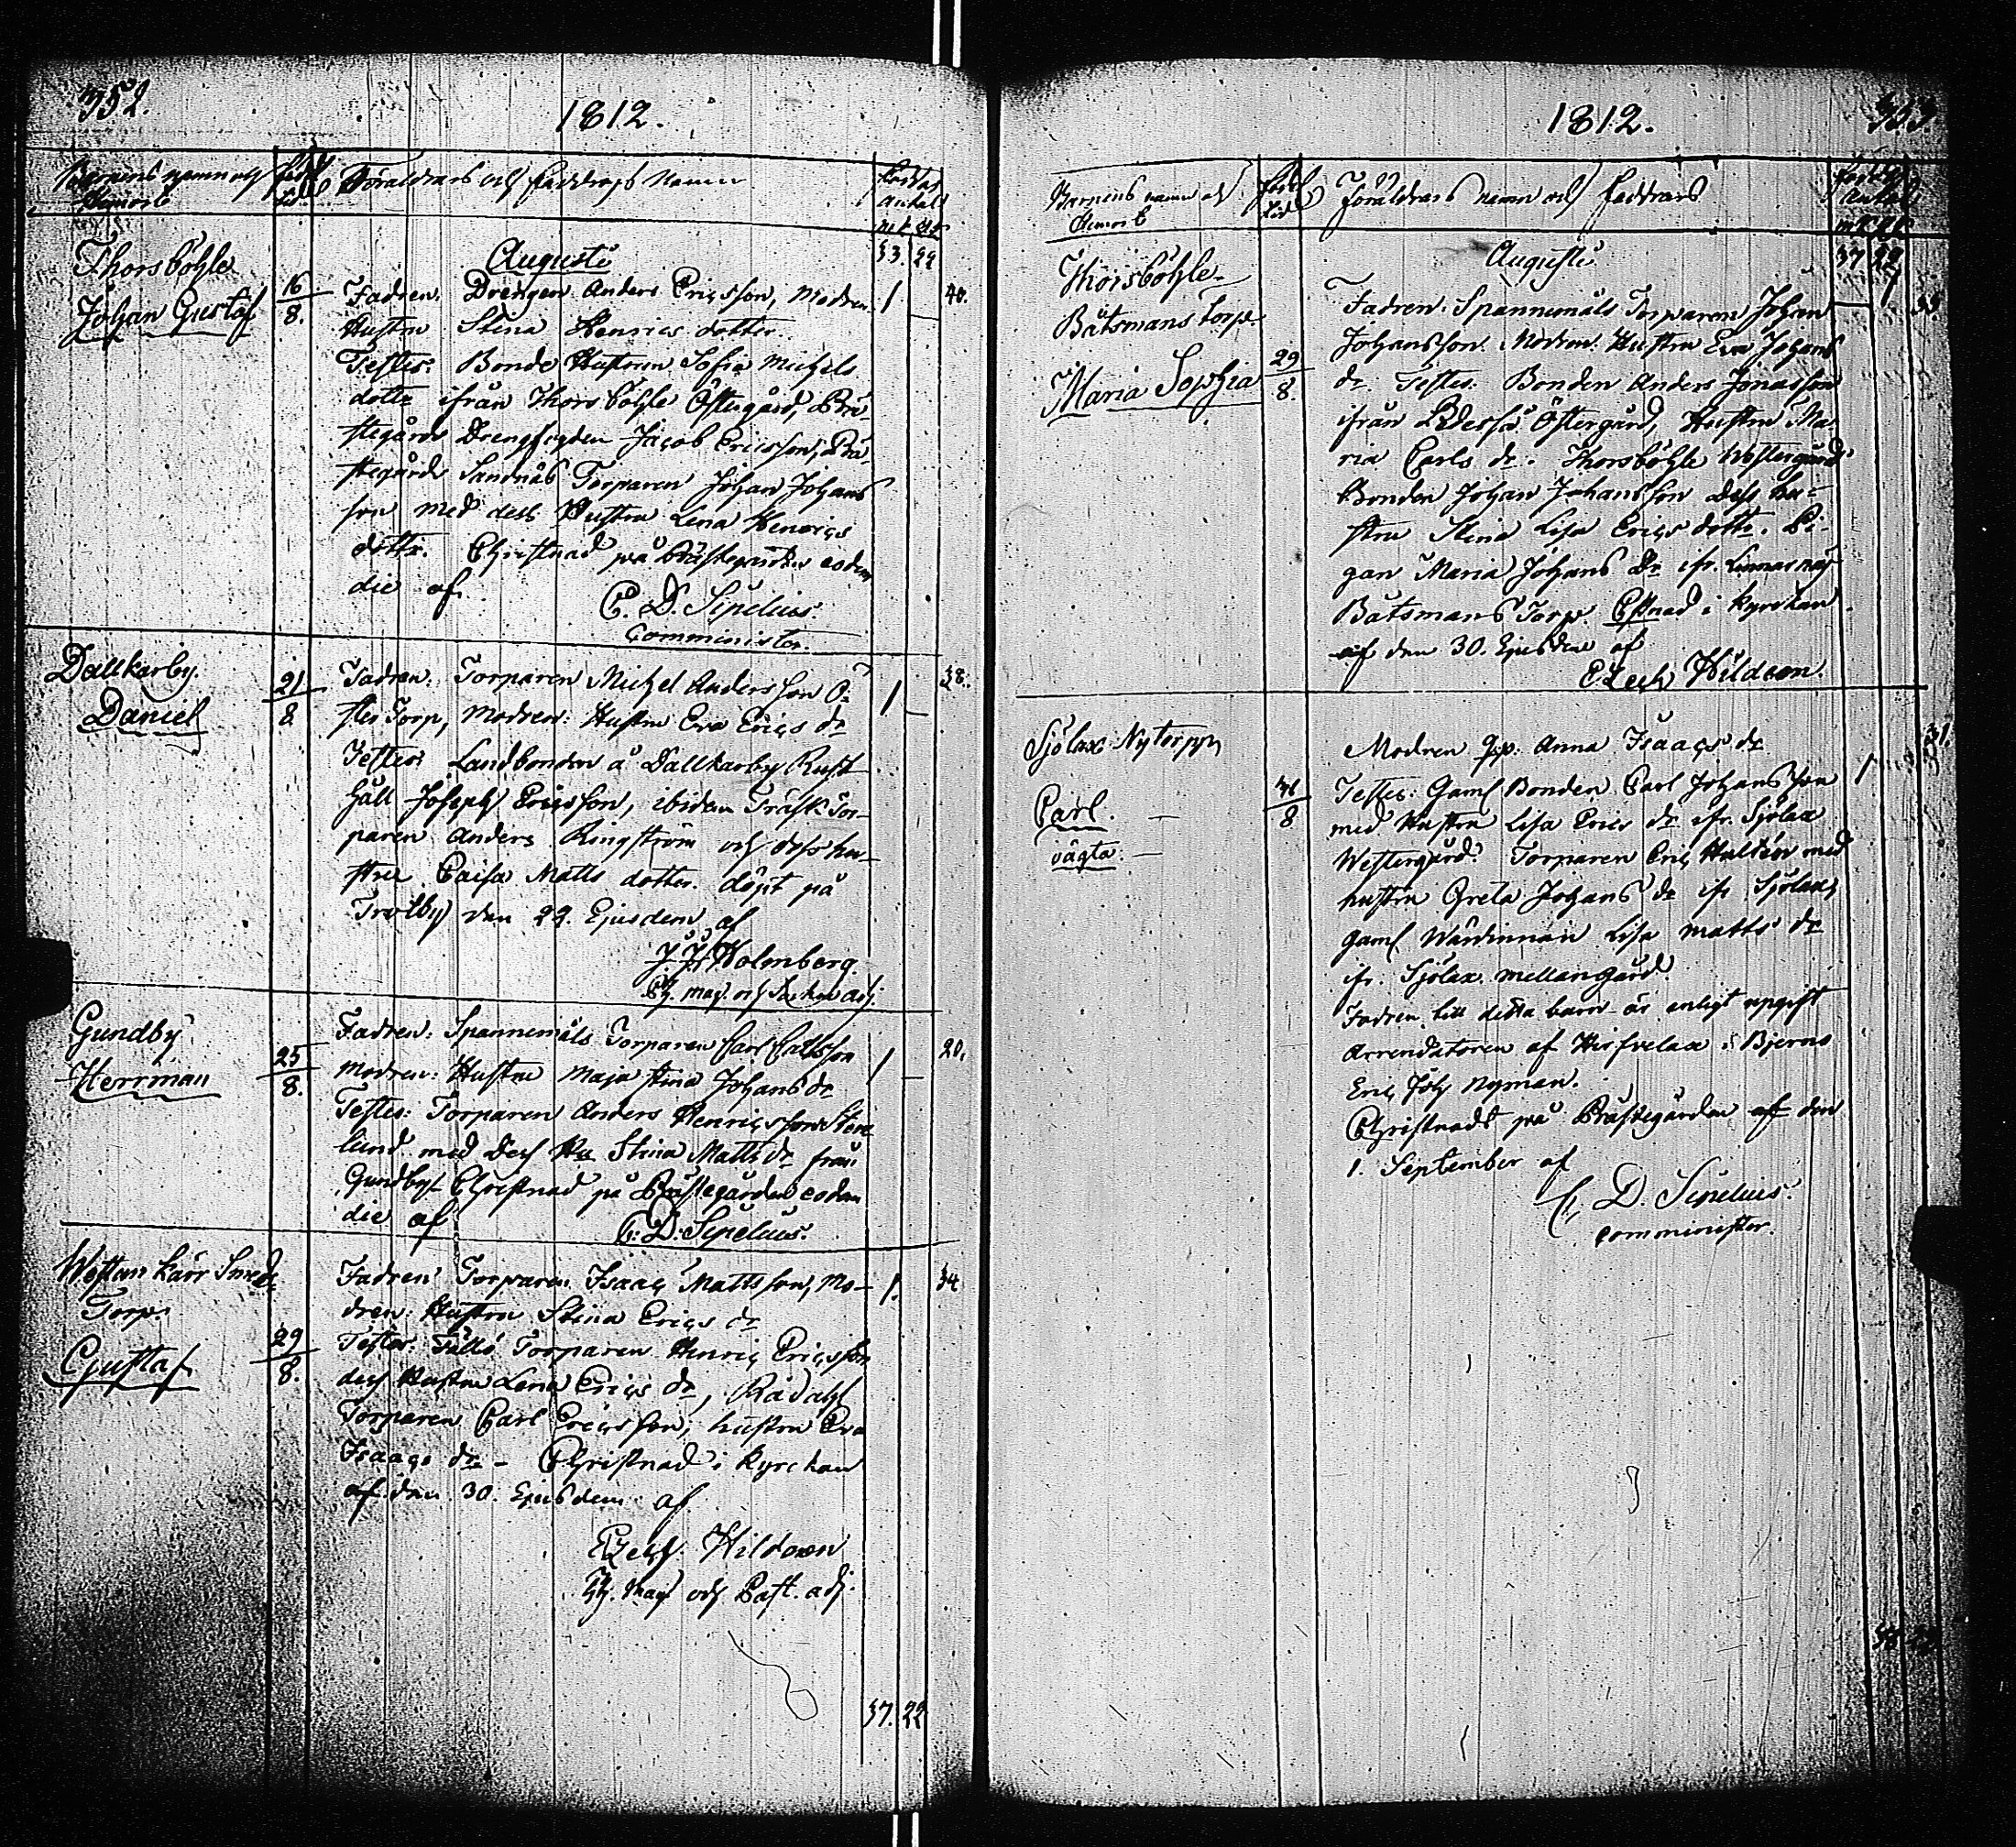 352.
1812.
Barnens namn och
Hemort
Föräldrars och Faddrars Namn
Augusti
53. 22
Thorsböhle
Johan Gustaf
16/8.
Fadren: Drengen Anders Ericsson, Modren
Hustru Stina Henrics dotter.
Testes: Bonde Hustrun Sofia Michels
dottr ifrån Thorsböhle Östergård, Prä-
stegårds Drengfogden Jacob Ericsson, Prä-
stegårds Sandnäs Torparen Johan Johans
son med dess Hustru Lena Henrics
dottr. Christnad på Prästegården eodem
die af
C. D. Sipelius.
Comminister.
1
40.
Dallkarby.
Daniel
21/8
Fadren: Torparen Michel Andersson Ö-
ster Torp, Modren: Hustru Eva Erics dr
Testes: Landbonden å Dallkarby Rust-
håll Joseph Ericsson, ibidem Träsk Tor-
paren Anders Ringström och dess hu-
stru Caisa Matts dotter. döpt på
Trotby den 22. Ejusdem af
J. J. Holmberg
1
38.
Gundby
Herrman
25/8.
Fadren: Spannemåls Torparen Carl Carlsson
Modren: Hustru Maja Stina Johans dr
Testes: Torparen Anders Henricsson
lund med Dess Hu Stina Matts dr från
Gundby. Christnad på Prästegården eodem
die af
C. D. Sipelius.
1
20.
Westankärr Smeds
Torp.
Gustaf
29/8.
Fadren Torparen Isaac Mattsson, Mo-
dren: Hustru Stina Erics dr
Testes: Torparen Henric Ericsson
dess Hustru Lena Erics dr, Rådahl
Torparen Carl Ericsson, hustru Eva
Isaacs dr - Christnad i Kyrckan
af den 30. Ejusdem af
Ezech. Hildeen
Ph. Mag. och Past. adj.
1.
34
37. 22
1812.
353.
Barnens namn och
Hemort
Föräldrars namn och Faddrars
Augusti
37 22
Thorsböhle
Båtsmans torp.
Maria Sophia
29/8.
Fadren: Spannemåls Torparen Johan
Johansson. Modren: Hustru Eva Johans
dr Testes: Bonden Anders Jonasson
ifrån Östergård, Hustru Ma-
ria Carls dr. Thorsböhle Westergård
Bonden Johan Johansson Dess hu-
stru Stina Lisa Erics dottr. Pi-
gan Maria Johans Dr ifr. Linnarnäs
Båtsmans Torp. Chstnad i Kyrckan
af den 30. Ejusdem af
Ezech Hildeen.
Sjölax Nytorpp
Carl.
oägta.
31/8
Modren qp. Anna Isaacs dr
Testes: Gaml Bonden Carl Johansson
med Hustru Lisa Erics dr ifr. Sjölax
Westergård. Torparen Eric Hulteen med
hustru Greta Johans dr ifr Sjölax,
Gaml Wärdinnan Lisa Matts dr
ifr. Sjölax mellangård.
Fadren till detta barn är enligt upgift
Arrendatoren af Hirfvelax i Bjerno
Eric Joh Nyman.
Christnadt på Prästegården af den
1. September af
C. D. Sipelius.
comminister.
1
31.